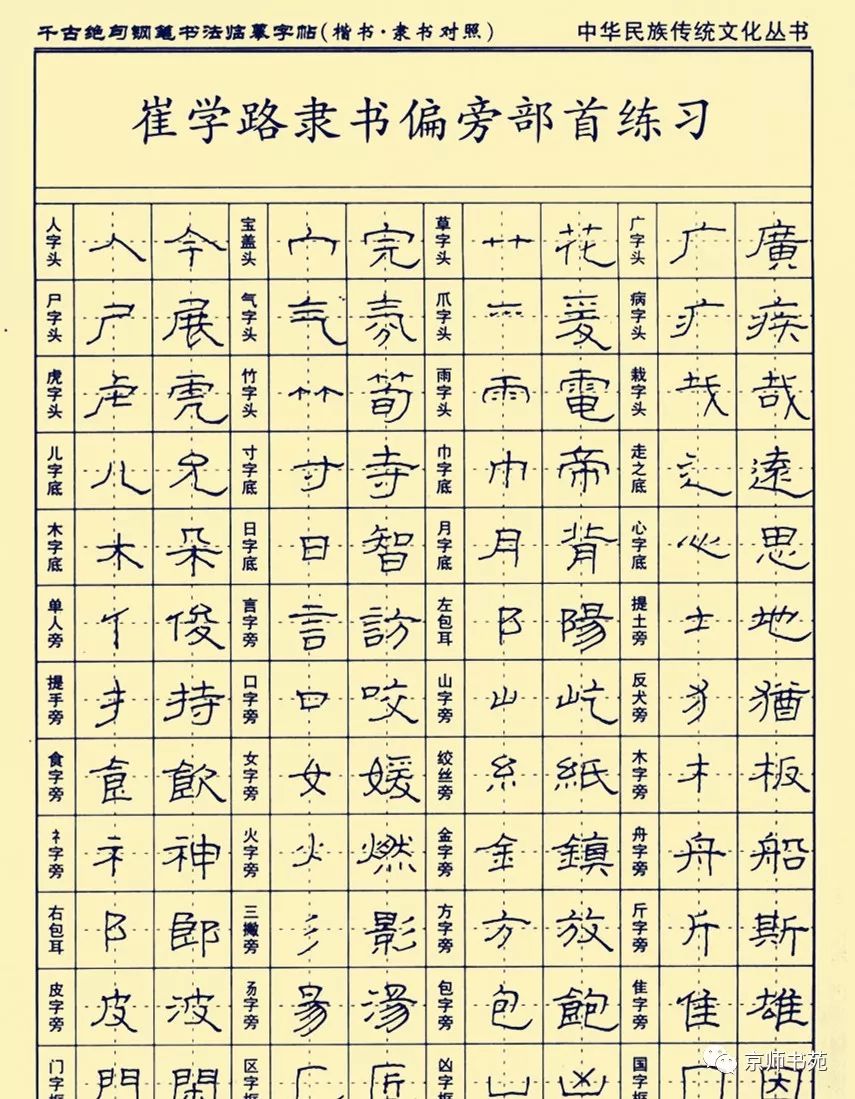 千古绝句钢笔书法临摹字帖(楷书·隶书对照) 中华民族传统文化丛书
崔学路隶书偏旁部首练习
人字头 人 今 宝盖头 宀 完 草字头 艹 花 广字头 广 廣
尸字头 尸 展 气字头 气 氛 爪字头 爫 爰 病字头 疒 疾
虎字头 虍 虎 竹字头 竹 筍 雨字头 雨 電 栽字头 𢦏 哉
儿字底 儿 兄 寸字底 寸 寺 巾字底 巾 帝 走之底 辶 遠
木字底 木 朵 日字底 日 智 月字底 月 背 心字底 心 思
单人旁 亻 俊 言字旁 言 訪 左包耳 阝 陽 提土旁 土 地
提手旁 扌 持 口字旁 口 咬 山字旁 山 屹 反犬旁 犭 猶
食字旁 飠 飲 女字旁 女 媛 绞丝旁 糹 紙 木字旁 木 板
礻字旁 礻 神 火字旁 火 燃 金字旁 金 鎮 舟字旁 舟 船
右包耳 阝 郎 三撇旁 彡 影 方字旁 方 放 斤字旁 斤 斯
皮字旁 皮 波 易字旁 昜 湯 包字旁 包 飽 隹字旁 隹 雄
门字框 門 閑 区字框 匚 匠 凶字框 凵 凶 国字框 囗
京师书苑